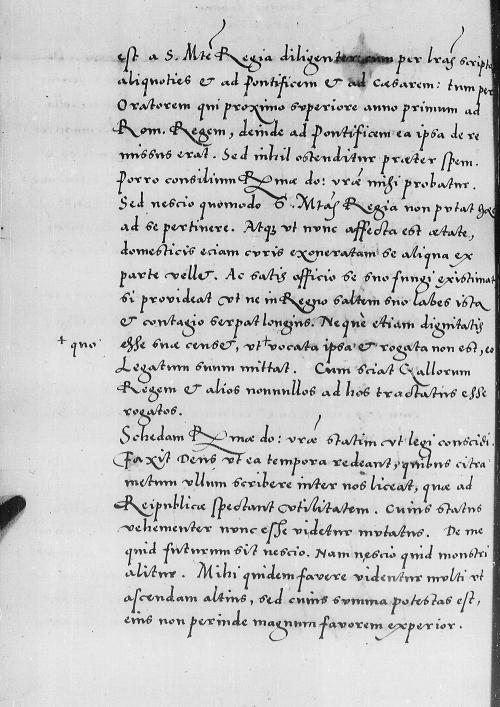 est a S. Mte Regia diligenter cum per lras scripte
aliquoties & ad Pontificem & ad Cæsarem: tum per
Oratorem qui proximo superiore anno primum ad
Rom. Regem, deinde ad Pontificem ea ipsa de re
missus erat. Sed nihil ostenditur præter spem.
Porro consilium Rmæ do: vræ mihi probatur.
Sed nescio quomodo S. Mtas Regia non putat hæc
ad se pertinere. Atq; vt nunc affecta est ætate,
domesticis eciam curis exoneratam se aliqua ex
parte vellet. Ac satis officio se suo fungi existimat
si provideat vt ne in Regno saltem suo labes ista
& contagio serpat longius. Neque etiam dignitatis
+ quo
esse suæ censet, vt + vocata ipsa & rogata non est, eo
Legatum suum mittat. Cum sciat Gallorum
Regem & alios nonnullos ad hos tractatus esse
rogatos.
Schedam Rmæ do: vræ statim vt legi conscidi.
Faxit Deus vt ea tempora redeant, quibus citra
metum vllum scribere inter nos liceat, quæ ad
Reipublicæ spectant vtilitatem. Cuius status
vehementer nunc esse videtur mutatus. De me
quid futurum sit nescio. Nam nescio quid monstri
alitur. Mihi quidem favere videntur multi vt
ascendam altius, sed cuius summa potestas est,
eius non perinde magnum favorem experior.